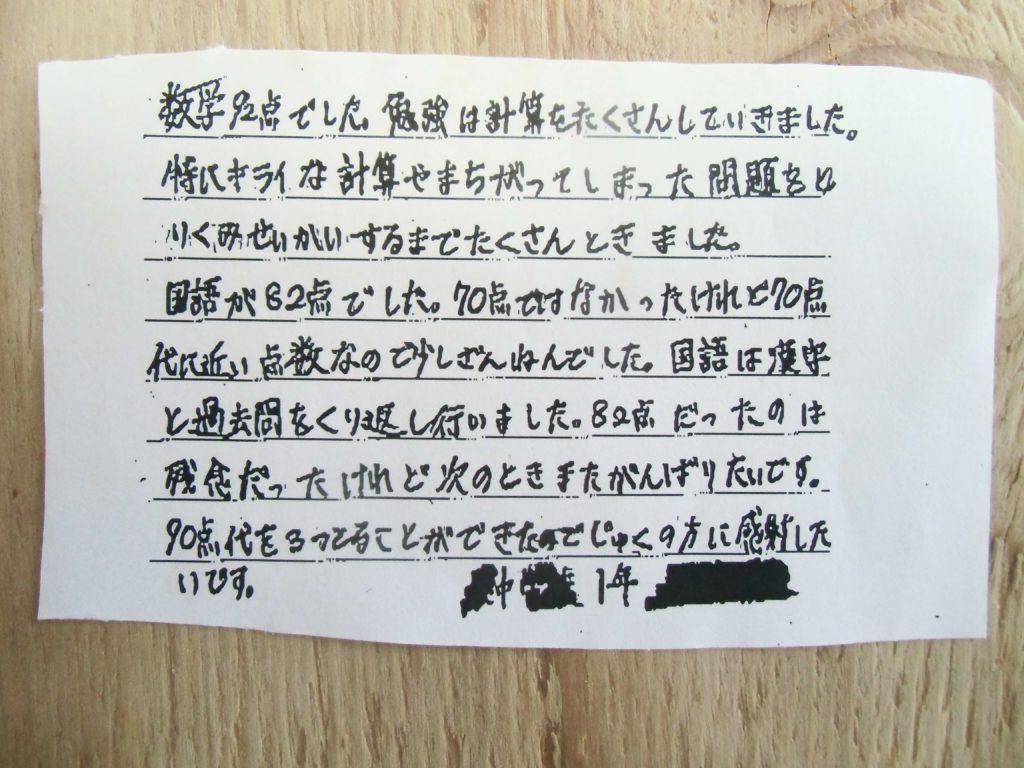 数学92点でした。勉強は計算をたくさんしていきました。
特にキライな計算やまちがってしまった問題をと
りくみせいかいするまでたくさんときました。
国語が82点でした。70点ではなかったけれど70点
代に近い点数なので少しざんねんでした。国語は漢字
と過去問をくり返し行いました。82点だったのは
残念だったけれど次のときまたがんばりたいです。
90点代を3つとることができたのでじゅくの方に感射した
いです。
中 1年